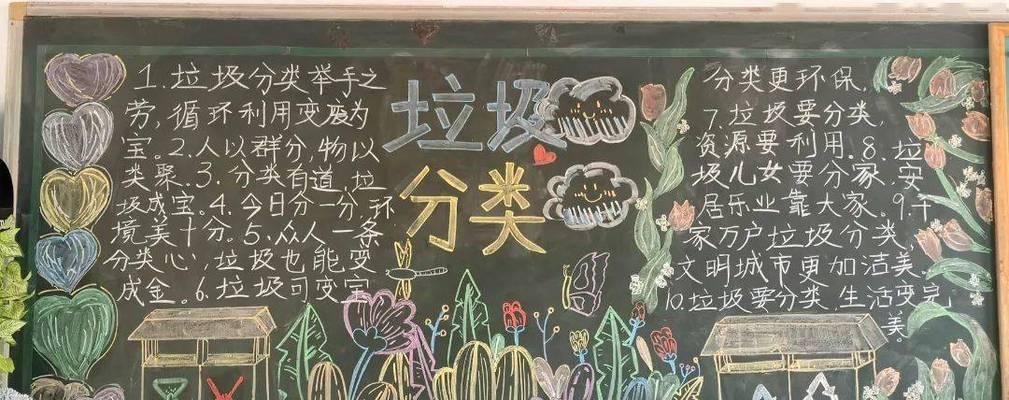 1.垃圾分类举手之
劳,循环利用变废为
宝。2.人以群分,物以
类聚.3.分类有道,垃
圾成宝。4.今日分一分,环
境美十分。5.众人一条
分类心,垃圾也能变
成金。6.垃圾可变宝
垃圾
分类
分类更环保,
7.垃圾要分类,
资源要利用。8.垃
圾儿女要分家,安
居乐业靠大家。9.千
家万户垃圾分类,
文明城市更加洁美。
10.垃圾要分类,生活变完
美。